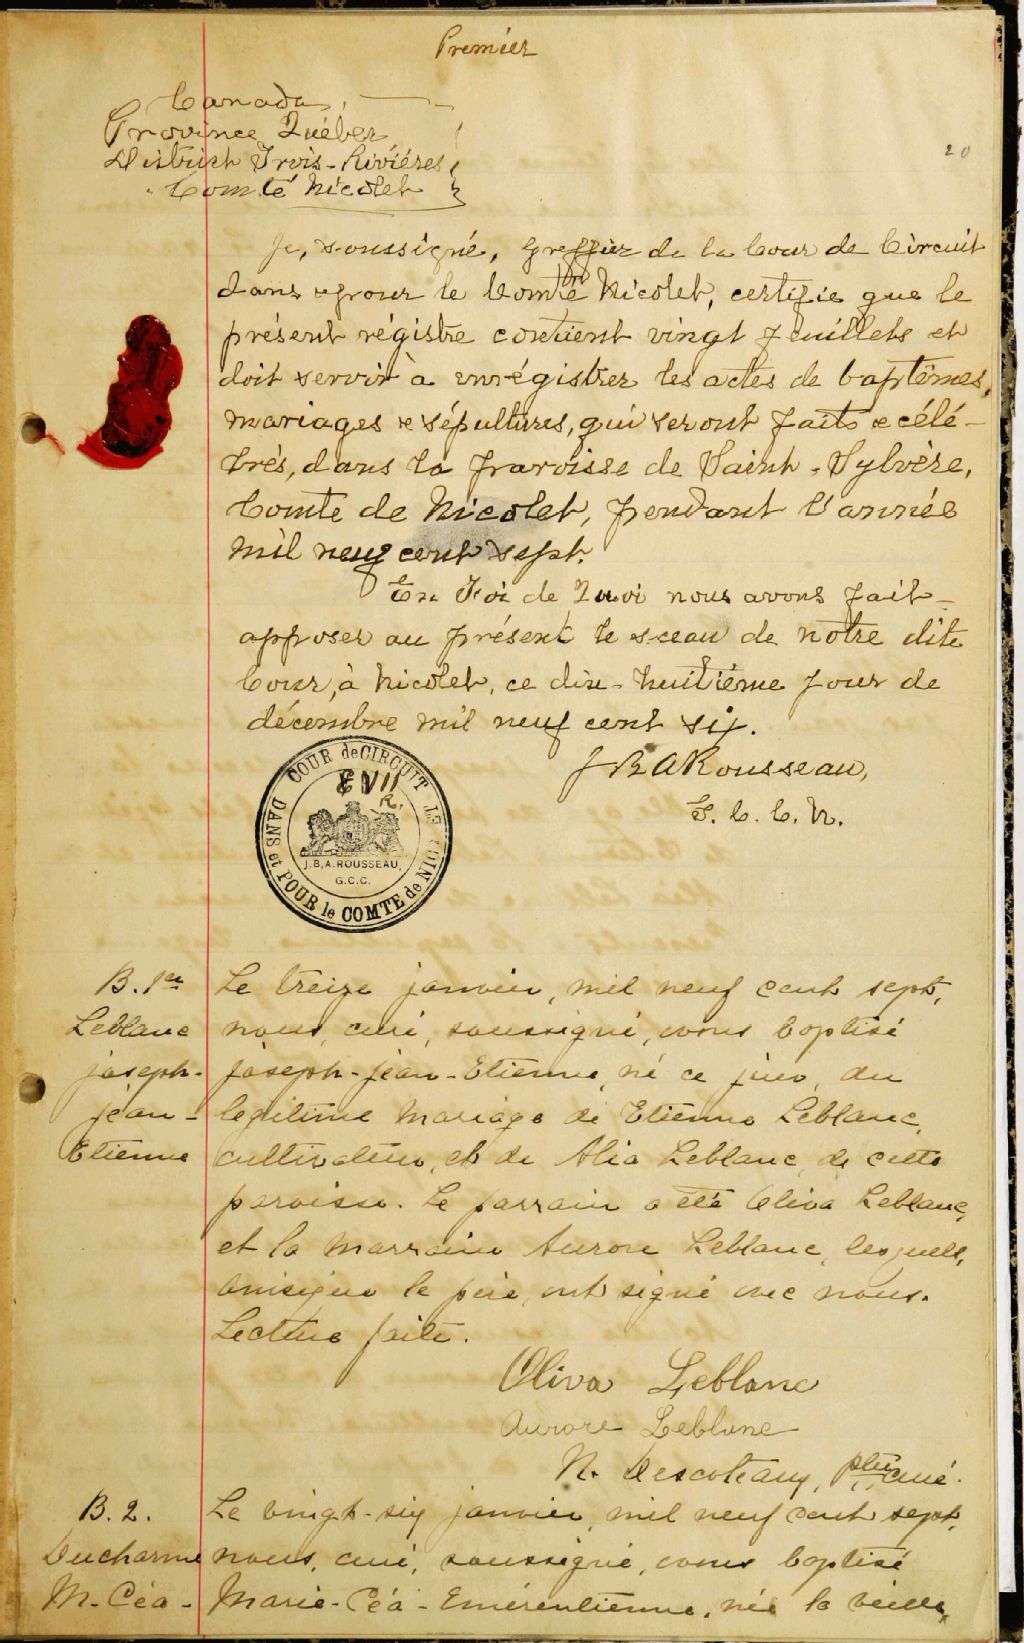 Premier
20
Canada,
Province Québec
District Trois-Rivières
Comté Nicolet
Je, soussigné, Greffier de la Cour de Circuit
dans & pour le Comté de Nicolet, certifie que le
présent régistre contient vingt feuillets et
doit servir à enrégistrer les actes de baptêmes,
mariages & sépultures, qui seront faits & célé-
brés, dans la paroisse de Saint-Sylvère,
Comté de Nicolet, pendant l'année
mil neuf cent sept.
En Foi de Quoi nous avons fait
apposer au présent le sceau de notre dite
Cour, à Nicolet, ce dix-huitième jour de
décembre mil neuf cent six.
J B A Rousseau,
G. C. C. N.
COUR de CIRCUIT
DANS et POUR le COMTE de NICOLET
E VII
R.
J.B.A. ROUSSEAU,
G.C.C.
B. 1er
Leblanc
joseph-
jean-
Etienne
Le treize janvier, mil neuf cent sept,
nous, curé, soussigné, avons baptisé
joseph-jean-Etienne, né ce jour, du
légitime mariage de Etienne Leblanc,
cultivateur, et de Alia Leblanc, de cette
paroisse. Le parrain a été Oliva Leblanc,
et la marraine Aurore Leblanc, lesquels,
ainsi que le père, ont signé avec nous.
Lecture faite.
Oliva Leblanc
Aurore Leblanc
N. Descoteaux, ptre curé.
B. 2.
Ducharme
M-Céa-
Le vingt-six janvier, mil neuf cent sept,
nous, curé, soussigné, avons baptisé
Marie-Céa-Emérentienne, née la veille,